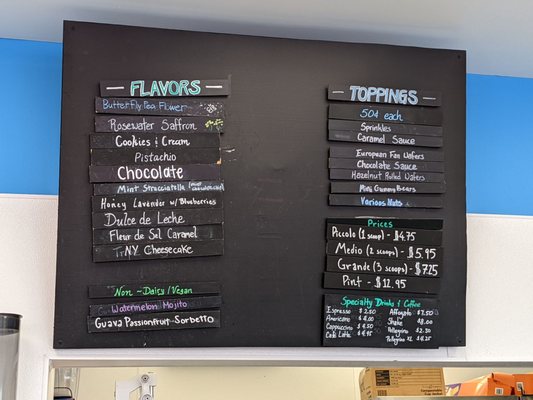 FLAVORS
Butterfly Pea Flower
Rosewater Saffron
Cookies & Cream
Pistachio
Chocolate
Mint Stracciatella
Honey Lavender w/ Blueberries
Dulce de Leche
Fleur de Sel Caramel
NY Cheesecake
Non-Dairy/Vegan
Watermelon Mojito
Guava Passionfruit Sorbetto
TOPPINGS
50¢ each
Sprinkles
Caramel Sauce
European Fan Wafers
Chocolate Sauce
Hazelnut Rolled Wafers
Mini Gummy Bears
Various Nuts
Prices
Piccolo (1 scoop) - $4.75
Medio (2 scoops) - $5.95
Grande (3 scoops) - $7.25
Pint - $12.95
Specialty Drinks & Coffee
Espresso $2.50
Americano $4.00
Cappuccino $4.50
Café Latte $4.75
Affogato $7.50
Shake $8.00
Pellegrino $2.50
Pellegrino XL